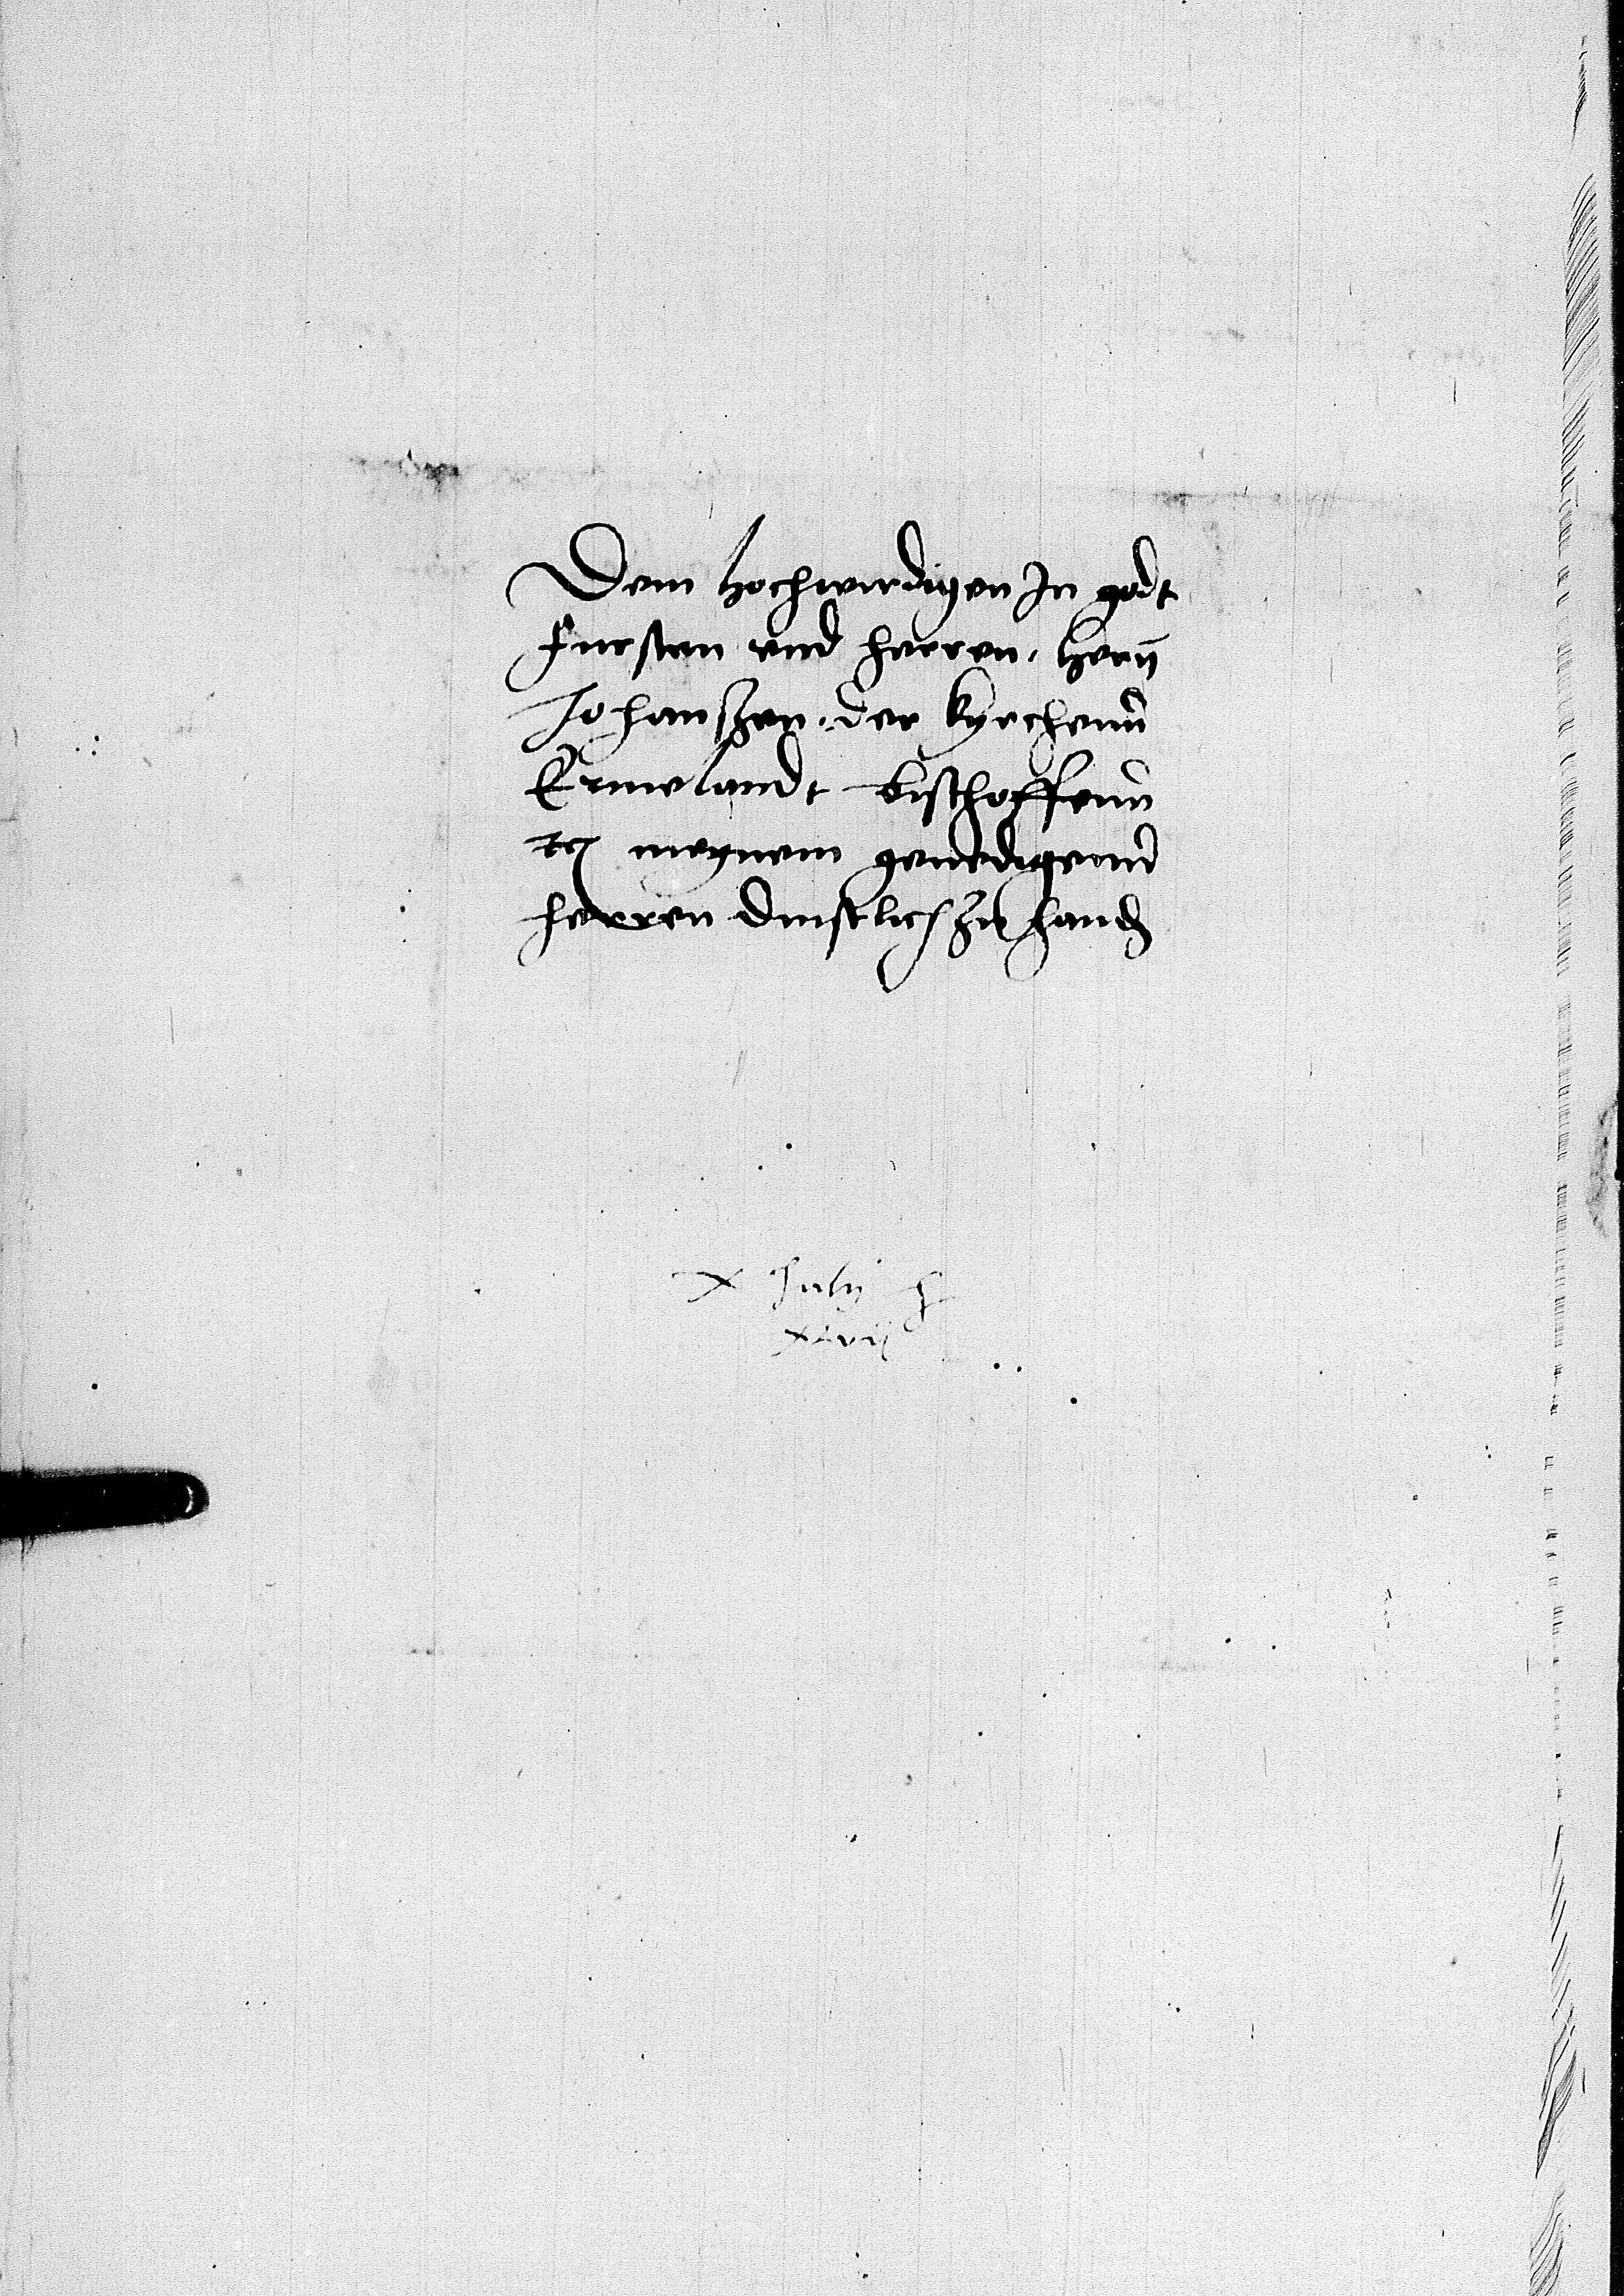 Dem hochwirdigen In godt
fursten vnd herren, hern
Johanszen, der kyrchenn
Ermelandt bisthoffenn
etc meynem genedigenn
herren dinstlich zu hand
X July
xlvii